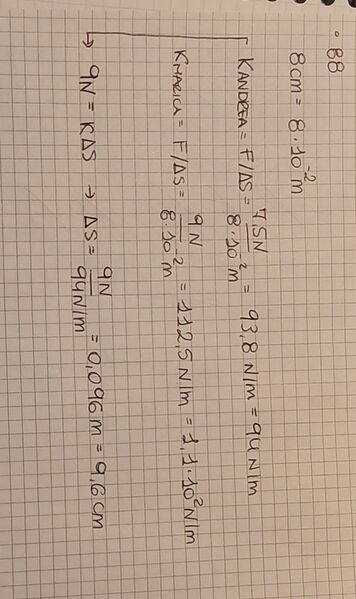 • 88
8cm = 8 · 10⁻² m
KANDREA = F/ΔS = 7,5N / 8·10⁻² m = 93,8 N/m = 94 N/m
KMARICA = F/ΔS = 9N / 8·10⁻² m = 112,5 N/m = 1,1 · 10² N/m
↳ 9N = KΔS → ΔS = 9N / 94N/m = 0,096 m = 9,6 cm